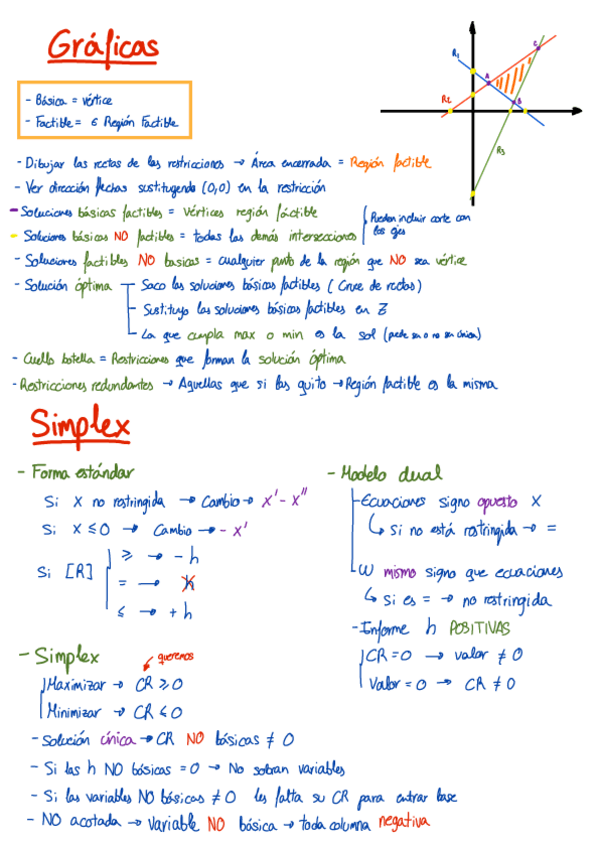 Gráficas
- Básica = vértice
- Factible = ∈ Región Factible
R1
R2
A
B
C
R3
- Dibujar las rectas de las restricciones → Área encerrada = Región factible
- Ver dirección flechas sustituyendo (0,0) en la restricción
- Soluciones básicas factibles = vértices región fáctible
- Soluciones básicas NO factibles = todas las demás intersecciones
Pueden incluir corte con
los ejes
- Soluciones factibles NO basicas = cualquier punto de la región que NO sea vértice
- Solución óptima
- Saco las soluciones básicas factibles (Cruce de rectas)
- Sustituyo las soluciones básicas factibles en Z
- La que cumpla max o min es la sol (puede ser o no ser única)
- Cuello botella = Restricciones que forman la solución óptima
- Restricciones redundantes → Aquellas que si las quito → Región factible es la misma
Simplex
- Forma estándar
Si X no restringida → Cambio → X' - X''
Si X ≤ 0 → Cambio → - X'
Si [R]
≥ → - h
= → h
≤ → + h
- Modelo dual
- Ecuaciones signo opuesto X
↳ Si no está restringida → =
- W mismo signo que ecuaciones
↳ Si es = → no restringida
- Informe h POSITIVAS
CR = 0 → valor ≠ 0
Valor = 0 → CR ≠ 0
- Simplex
queremos
Maximizar → CR ≥ 0
Minimizar → CR ≤ 0
- Solución única → CR NO básicas ≠ 0
- Si las h NO básicas = 0 → No sobran variables
- Si las variables NO básicas ≠ 0 les falta su CR para entrar base
- NO acotada → Variable NO básica → toda columna negativa